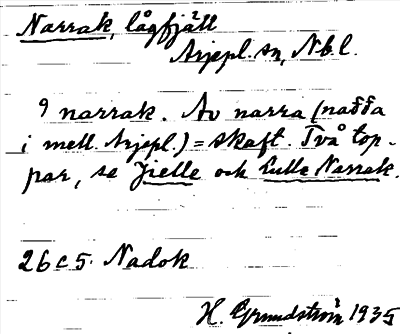 Narrak, lågfjäll
Arjepl. sn, Nb. l.
9 narrak. Av narra (nađđa
i mell. Arjepl.) = skaft. Två top-
par, se Jielle och Lulle Narrak.
26 c 5. Nadok
H. Grundström 1935